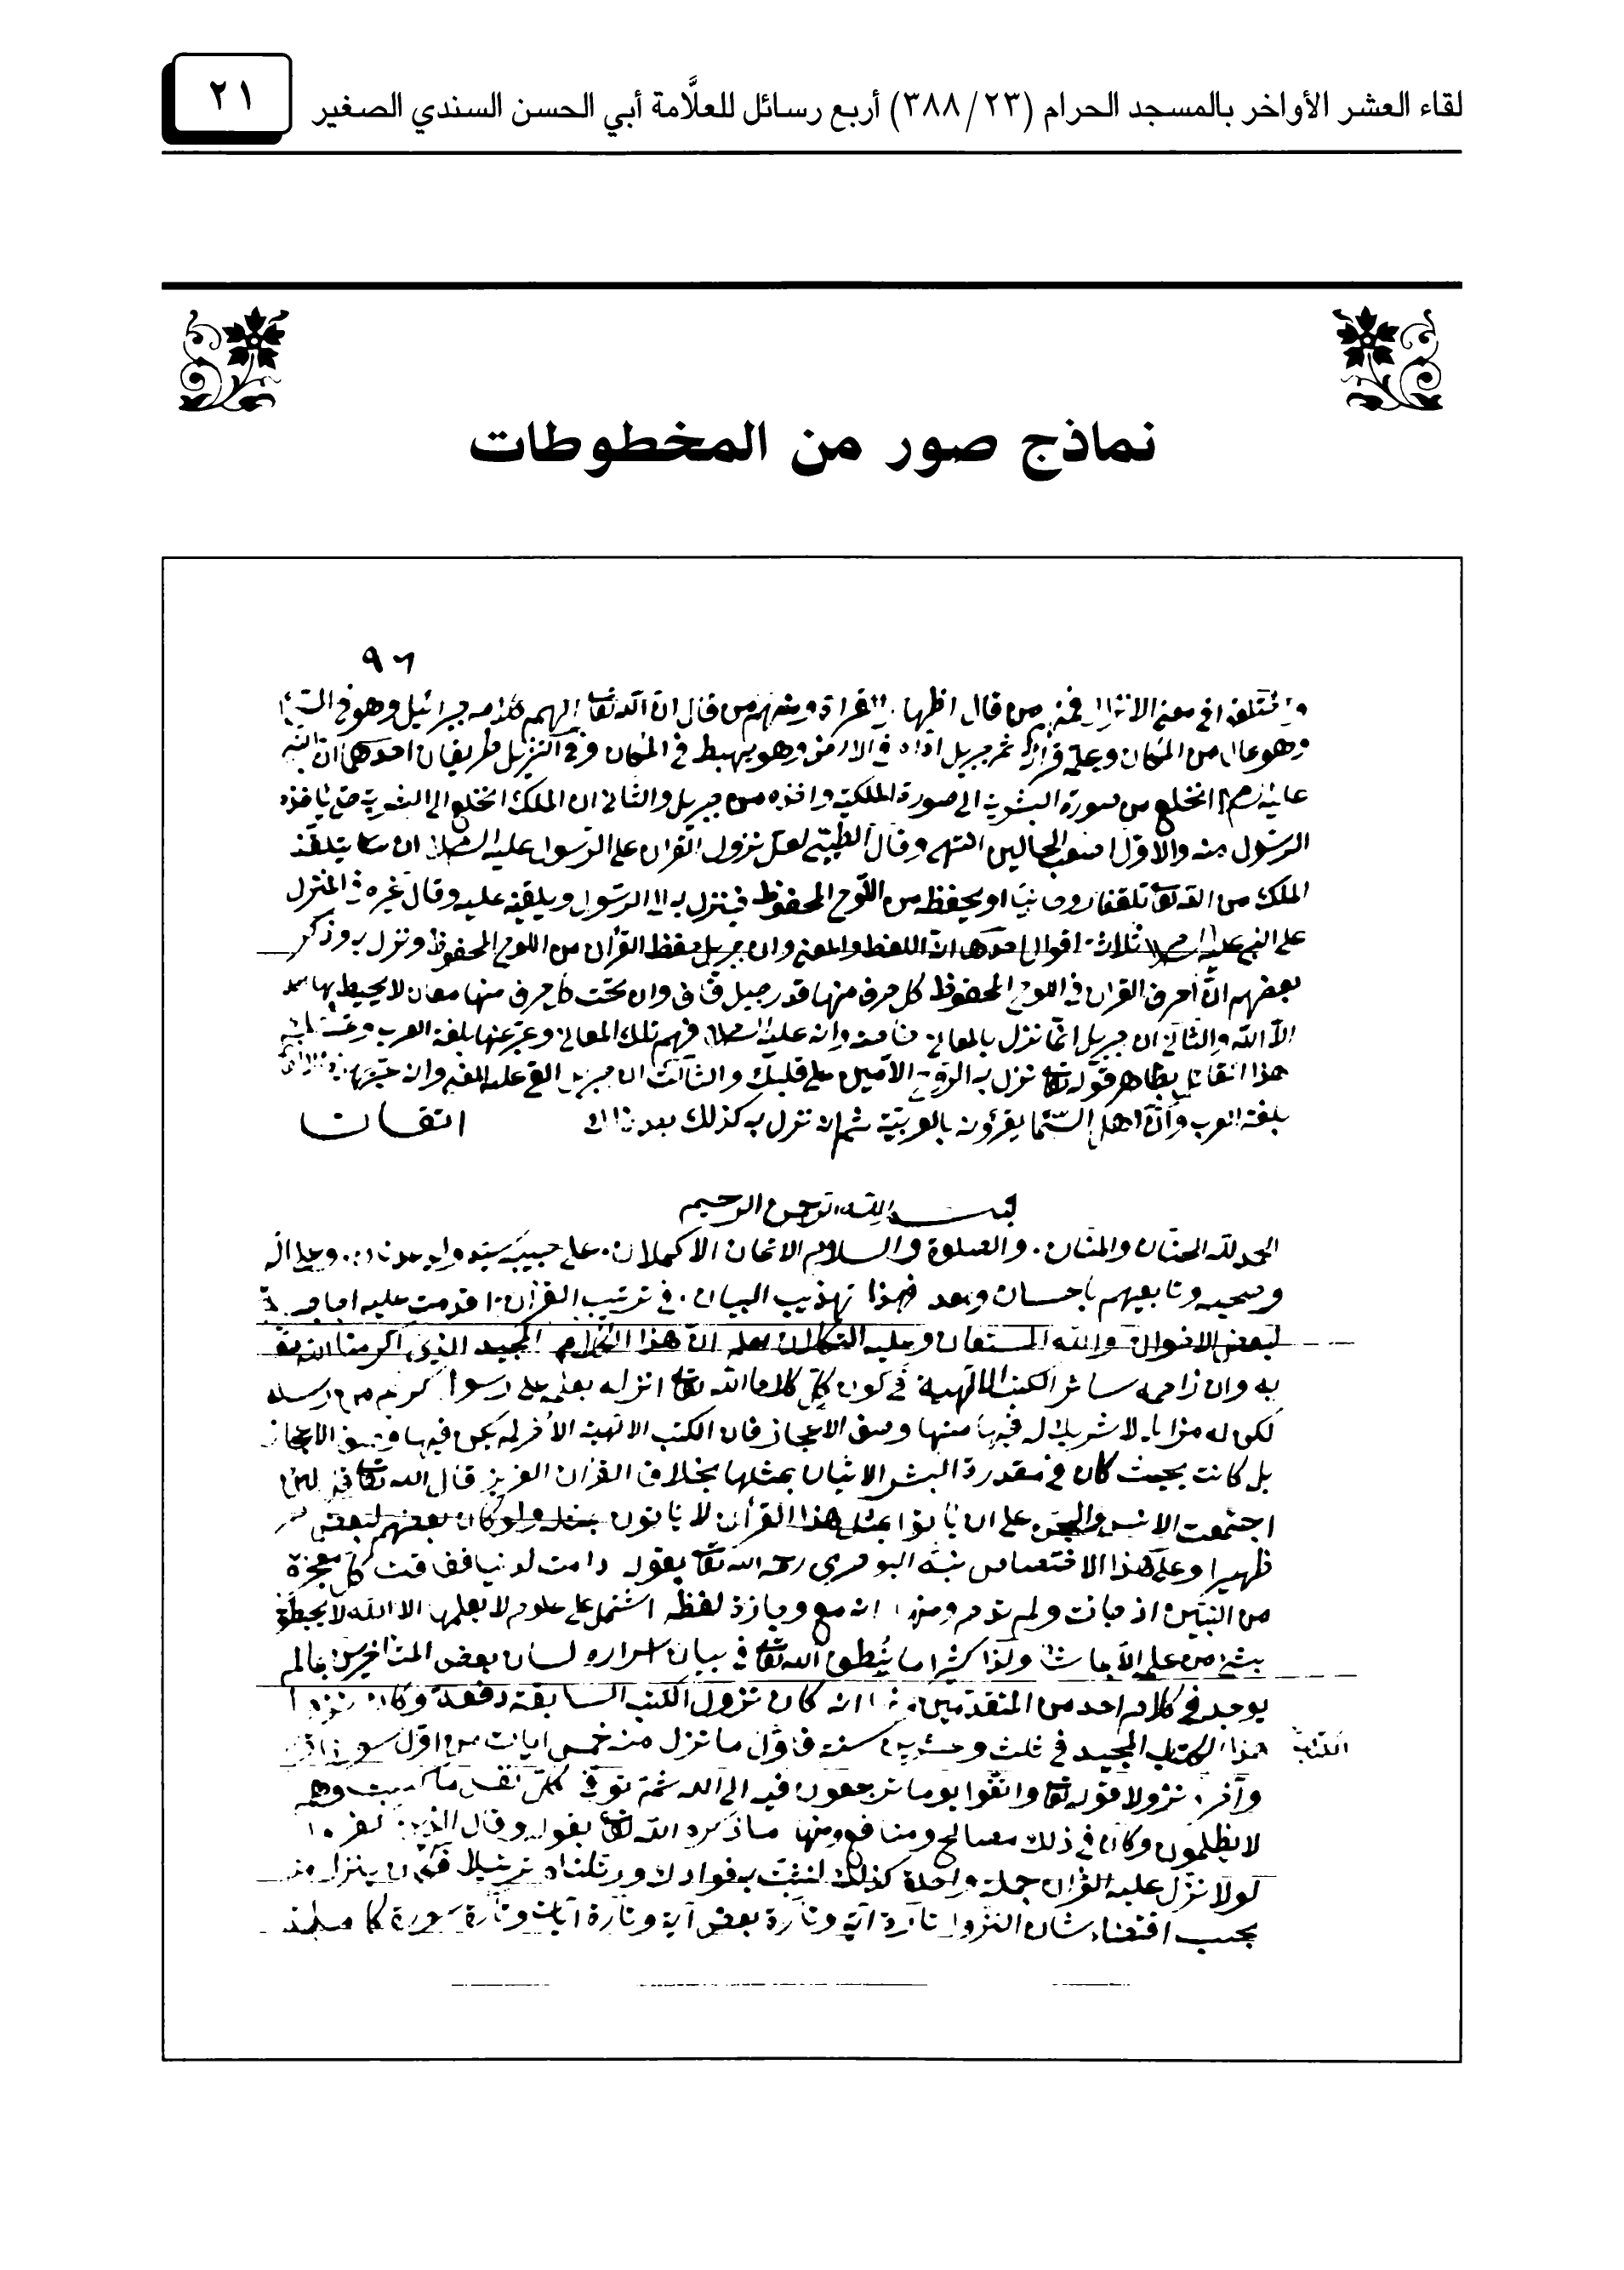 لقاء العشر الأواخر بالمسجد الحرام (٣٨٨/٢٣) أربع رسائل للعلَّامة أبي الحسن السندي الصغير
٢١
نماذج صور من المخطوطات
٩٦
من قال اظهار القراة ومنهم من قال ان الله تعا الهم كلامه جبرائيل وهو في
وهو عال من المكان وعلمه قراته ثم جبريل اداه في الارض وهو يهبط في المكان وفي التنزيل طريقان احدهما ان
انخلع من صورة البشرية الى صورة الملكية واخذه من جبريل والثاني ان الملك انخلع الى البشرية حتى ياخذه
الرسول منه والاول اصعب الحالين انتهى وقال الطيبي لعل نزول القران على الرسول عليه ان يتلقفه
الملك من الله تعا تلقفا روحانيا او يحفظه من اللوح المحفوظ فينزل به الى الرسول ويلقيه عليه وقال غيره في المنزل
على النبي ثلاثة اقوال احدها انه اللفظ والمعنى وان جبريل حفظ القرأن من اللوح المحفوظ ونزل به وذكر
بعضهم ان احرف القران في اللوح المحفوظ كل حرف منها قدر جبل قاف وان تحت كل حرف منها معان لا يحيط بها
الا الله والثاني ان جبريل انما نزل بالمعاني خاصة وانه عليه فهم تلك المعاني وعبر عنها بلغة العرب
هذا القائل بظاهر قوله تعا نزل به الروح الامين على قلبك والثالث ان جبريل القي عليه المعنى وانه
بلغة العرب وان اهل السما يقرؤنه بالعربية ثم انه نزل به كذلك بعد اتقان
بسم الله الرحمن الرحيم
الحمد لله الحنان والمنان . والصلوة والسلام الاتمان الاكملان . على حبيبه سيد ولد عدنان . وعلى اله
وصحبه وتابعيهم باحسان وبعد فهذا تهذيب البيان . في ترتيب القران . اقدمت عليه
لبعض الاخوان والله المستعان وعليه التكلان اعلم ان هذا الكلام المجيد الذي اكرمنا الله تعا
به وان زاحمه سائر الكتب الالهية في كون كل كلام الله تعا انزله على رسول كريم من رسله
لكن له مزايا لا شريك له فيها منها وصف الاعجاز فان الكتب الالهية الأخر لم يكن فيها وصف الاعجاز
بل كانت بحيث كان في مقدرة البشر الاتيان بمثلها بخلاف القران العزيز قال الله تعا لئن
اجتمعت الانس والجن على ان ياتوا بمثل هذا القرأن لا ياتون بمثله ولو كان بعضهم لبعض
ظهيرا وعلى هذا الاختصاص نبه البوصري رحمه الله تعا بقوله دامت لدينا ففاقت كل معجزة
من النبيين اذ جات ولم تدم ومنها انه مع وجازة لفظه اشتمل على علوم لا يعلمها الا الله لا يحيطون
بشي من علمه الا بما شا ولذا كثيرا ما ينطق الله تعا في بيان اسراره لسان بعض المتاخرين بما لم
يوجد في كلام احد من المتقدمين انه كان نزول الكتب السابقة دفعة وكان نزول
هذا الكتاب المجيد في ثلث وعشرين سنة فاول ما نزل منه خمس ايات من اول سورة
الكتاب
وآخره نزولا قوله تعا واتقوا يوما ترجعون فيه الى الله ثم توفى كل نفس ما كسبت وهم
لا يظلمون وكان في ذلك مصالح ومنافع ومنها ما ذكره الله تعا بقوله وقال الذين كفروا
لولا نزل عليه القران جملة واحدة كذلك لنثبت به فوادك ورتلناه ترتيلا فكان ينزل منه
بحسب اقتضاء شان النزول تارة آية وتارة بعض آية وتارة آيات وتارة سورة كاملة